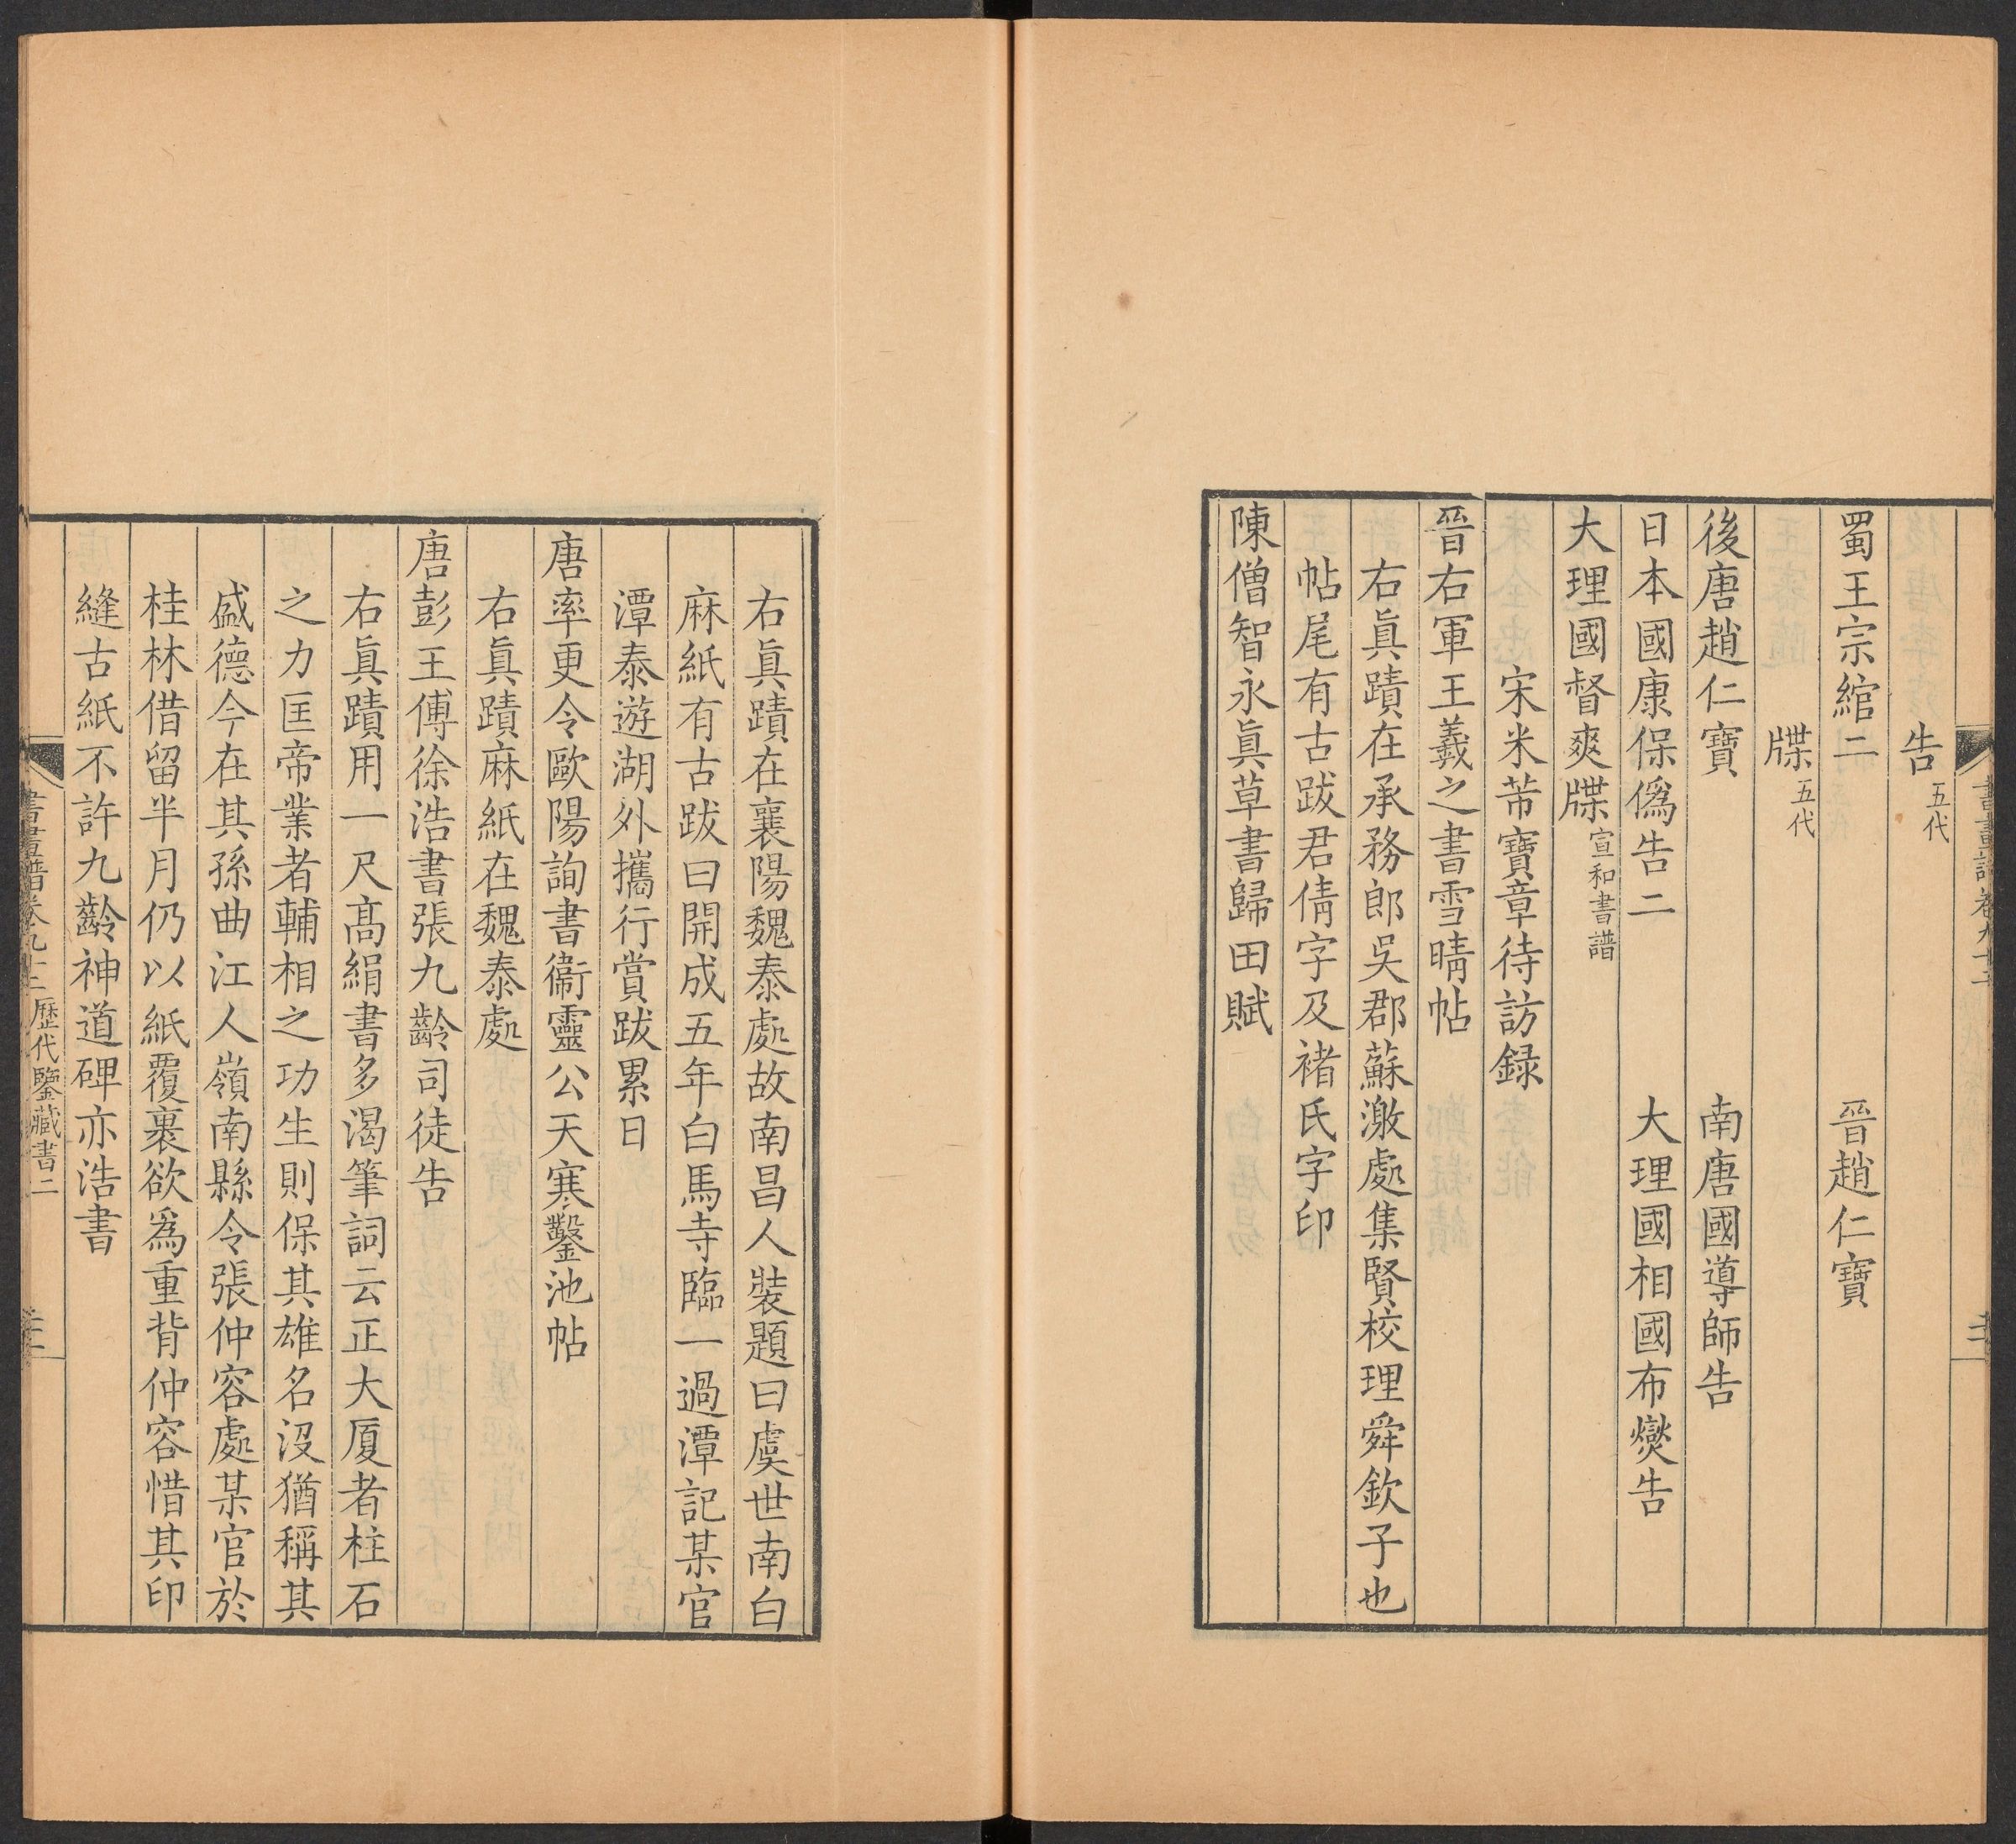 告五代
蜀王宗綰二 晉趙仁寶
牒五代
後唐趙仁寶 南唐國導師告
日本國康保僞告二 大理國相國布爕告
大理國督爽牒宣和書譜
宋米芾寶章待訪録
晉右軍王羲之書雪晴帖
右眞蹟在承務郎吳郡蘇激處集賢校理舜欽子也
帖尾有古跋君倩字及褚氏字印
陳僧智永眞草書歸田賦
右眞蹟在襄陽魏泰處故南昌人裝題曰虞世南白
麻紙有古跋曰開成五年白馬寺臨一過潭記某官
潭泰遊湖外攜行賞跋累日
唐率更令歐陽詢書衞靈公天寒鑿池帖
右眞蹟麻紙在魏泰處
唐彭王傅徐浩書張九齡司徒告
右眞蹟用一尺髙絹書多渴筆詞云正大厦者柱石
之力匡帝業者輔相之功生則保其雄名沒猶稱其
盛德今在其孫曲江人嶺南縣令張仲容處某官於
桂林借留半月仍以紙覆裹欲爲重背仲容惜其印
縫古紙不許九齡神道碑亦浩書
書畫譜卷九十二 歴代鑒藏書二